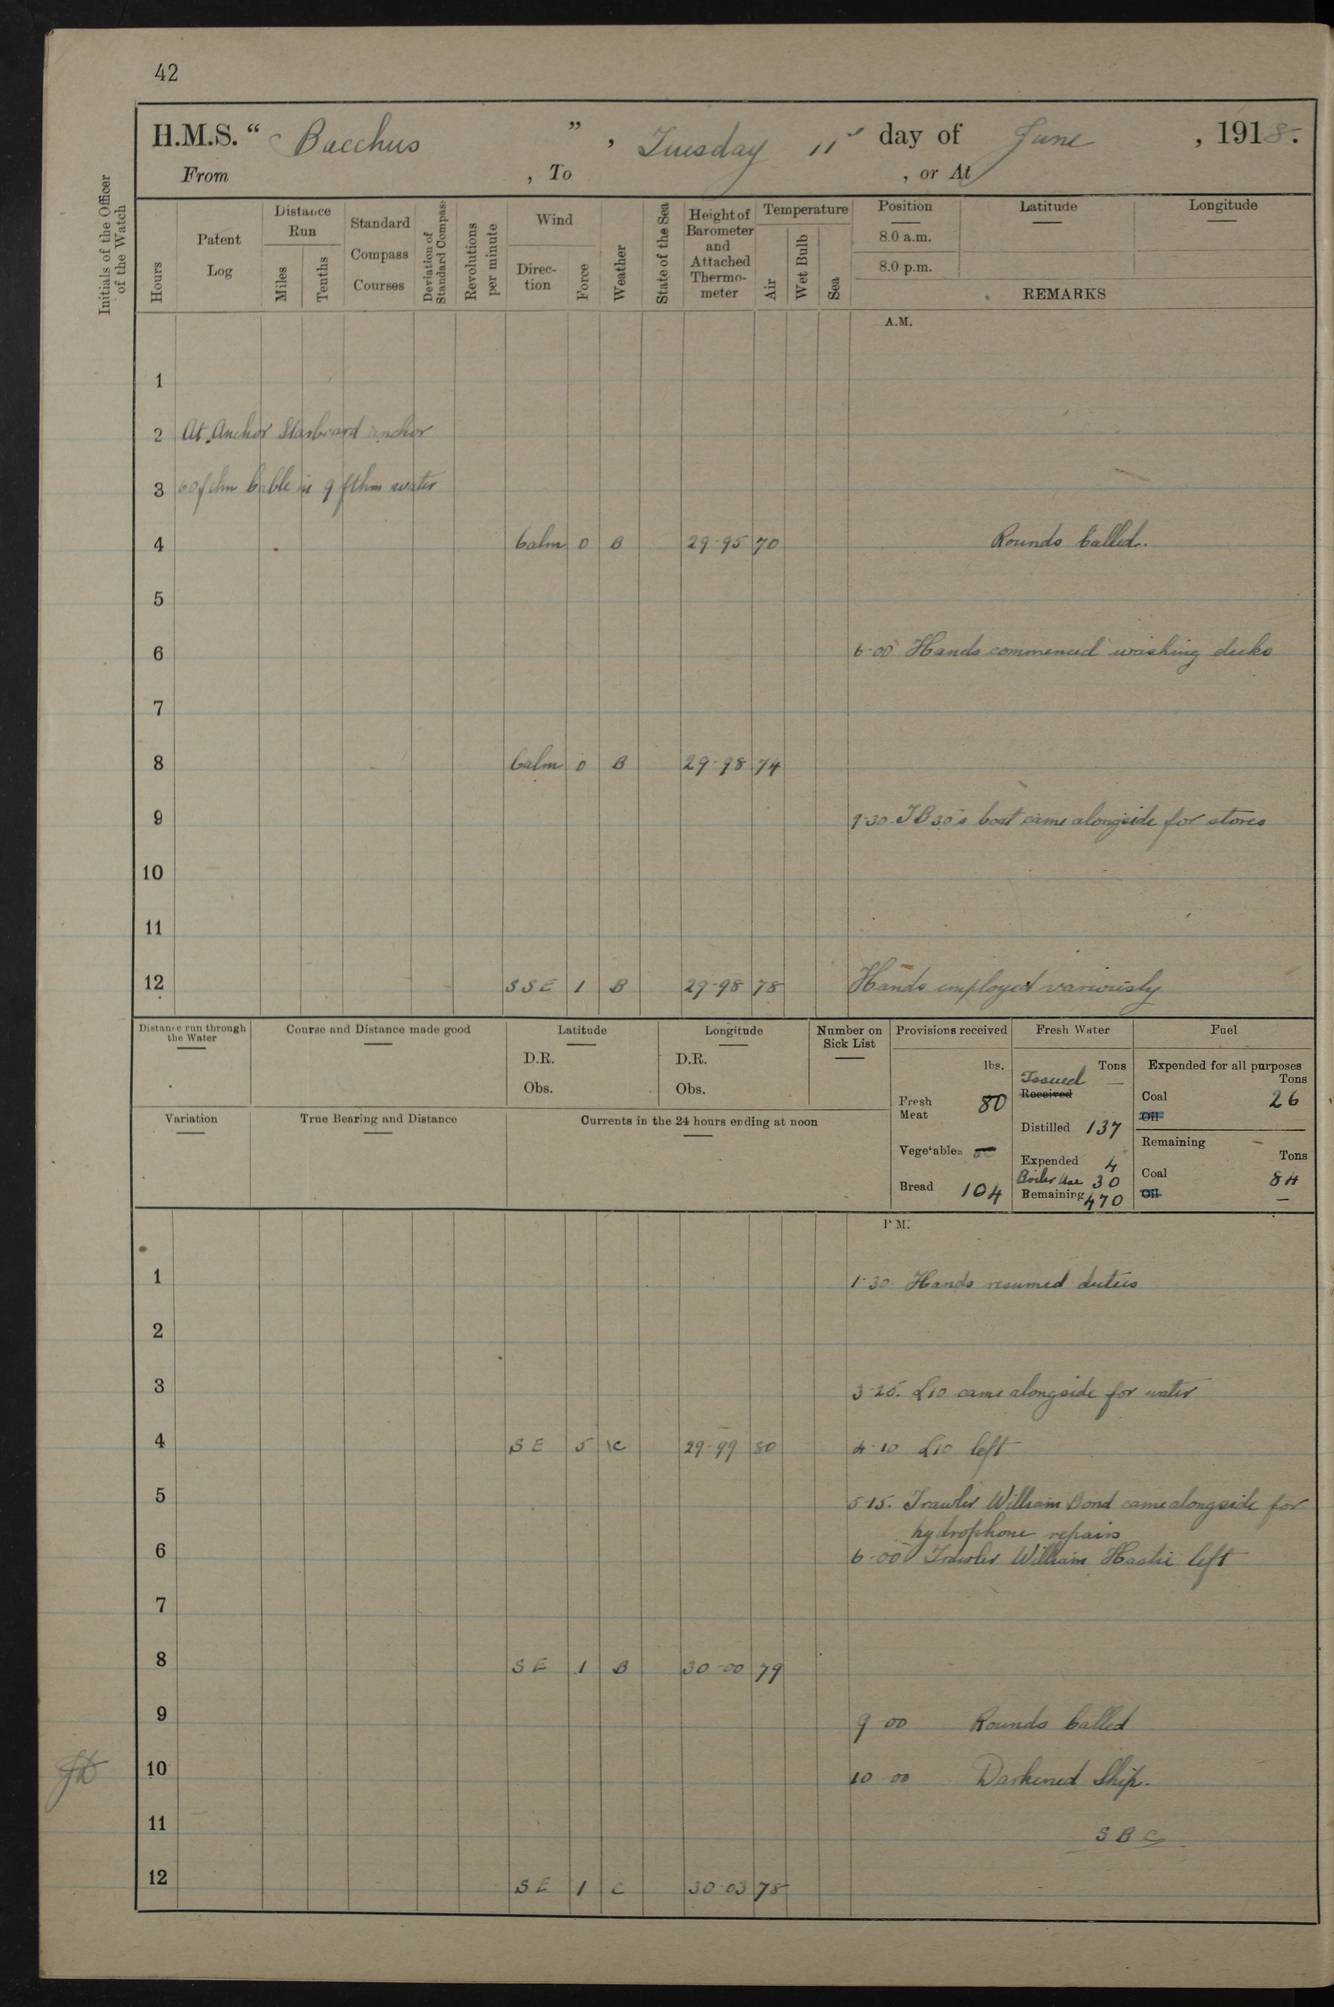 42
H.M.S. “ Bacchus ” , Tuesday 11th day of June , 1918.
From , To , or At
Initials of the Officer of the Watch
Hours
Patent Log
Distance Run
Miles
Tenths
Standard Compass Courses
Deviation of Standard Compass
Revolutions per minute
Wind
Direction
Force
Weather
State of the Sea
Height of Barometer and Attached Thermometer
Temperature
Air
Wet Bulb
Sea
Position Latitude Longitude
8.0 a.m.
8.0 p.m.
REMARKS
A.M.
1
2 At Anchor Starboard anchor
3 60 fthm Cable in 9 fthm water
4 Calm 0 B 29-95 70 Rounds Called.
5
6 6-00 Hands commenced washing decks
7
8 Calm 0 B 29-98 74
9 9-30 TB 30's boat came alongside for stores
10
11
12 SSE 1 B 29-98 78 Hands employed variously
Distance run through the Water
Course and Distance made good
Latitude
D.R.
Obs.
Longitude
D.R.
Obs.
Number on Sick List
Provisions received
lbs.
Fresh Meat 80
Vegetables
Bread 104
Fresh Water
Tons
Issued —
Received
Distilled 137
Expended 4
Boiler Use 30
Remaining 470
Fuel
Expended for all purposes
Tons
Coal 26
Oil
Remaining —
Tons
Coal 84
Oil —
Variation
True Bearing and Distance
Currents in the 24 hours ending at noon
P.M.
1 1-30. Hands resumed duties
2
3 3-25. L10 came alongside for water
4 SE 5 C 29-99 80 4-10 L10 left
5 5-15. Trawler William Bond came alongside for
hydrophone repairs
6 6-00 Trawler William Hastie left
7
8 SE 1 B 30-00 79
9 9 00 Rounds Called
10 10 00 Darkened Ship.
11 SBC
12 SE 1 C 30-03 78